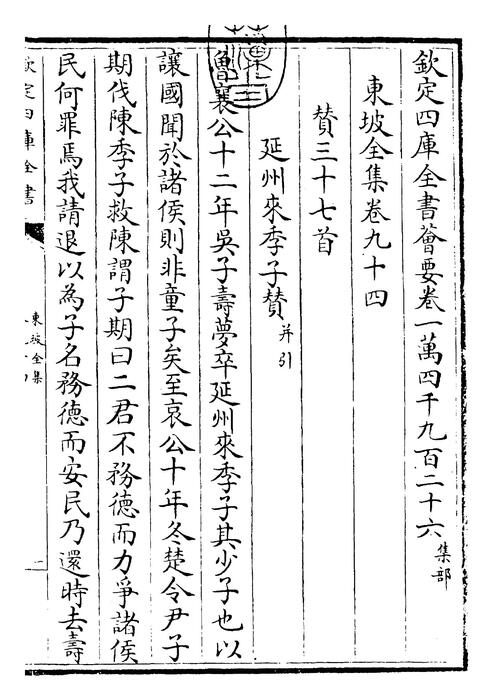 欽定四庫全書薈要卷一萬四千九百二十六集部
東坡全集卷九十四
賛三十七首
延州來季子賛并引
魯襄公十二年吳子壽夢卒延州來季子其少子也以
讓國聞於諸侯則非童子矣至哀公十年冬楚令尹子
期伐陳季子救陳謂子期曰二君不務德而力爭諸侯
民何罪焉我請退以為子名務德而安民乃還時去壽
欽定四庫全書
東坡全集
一